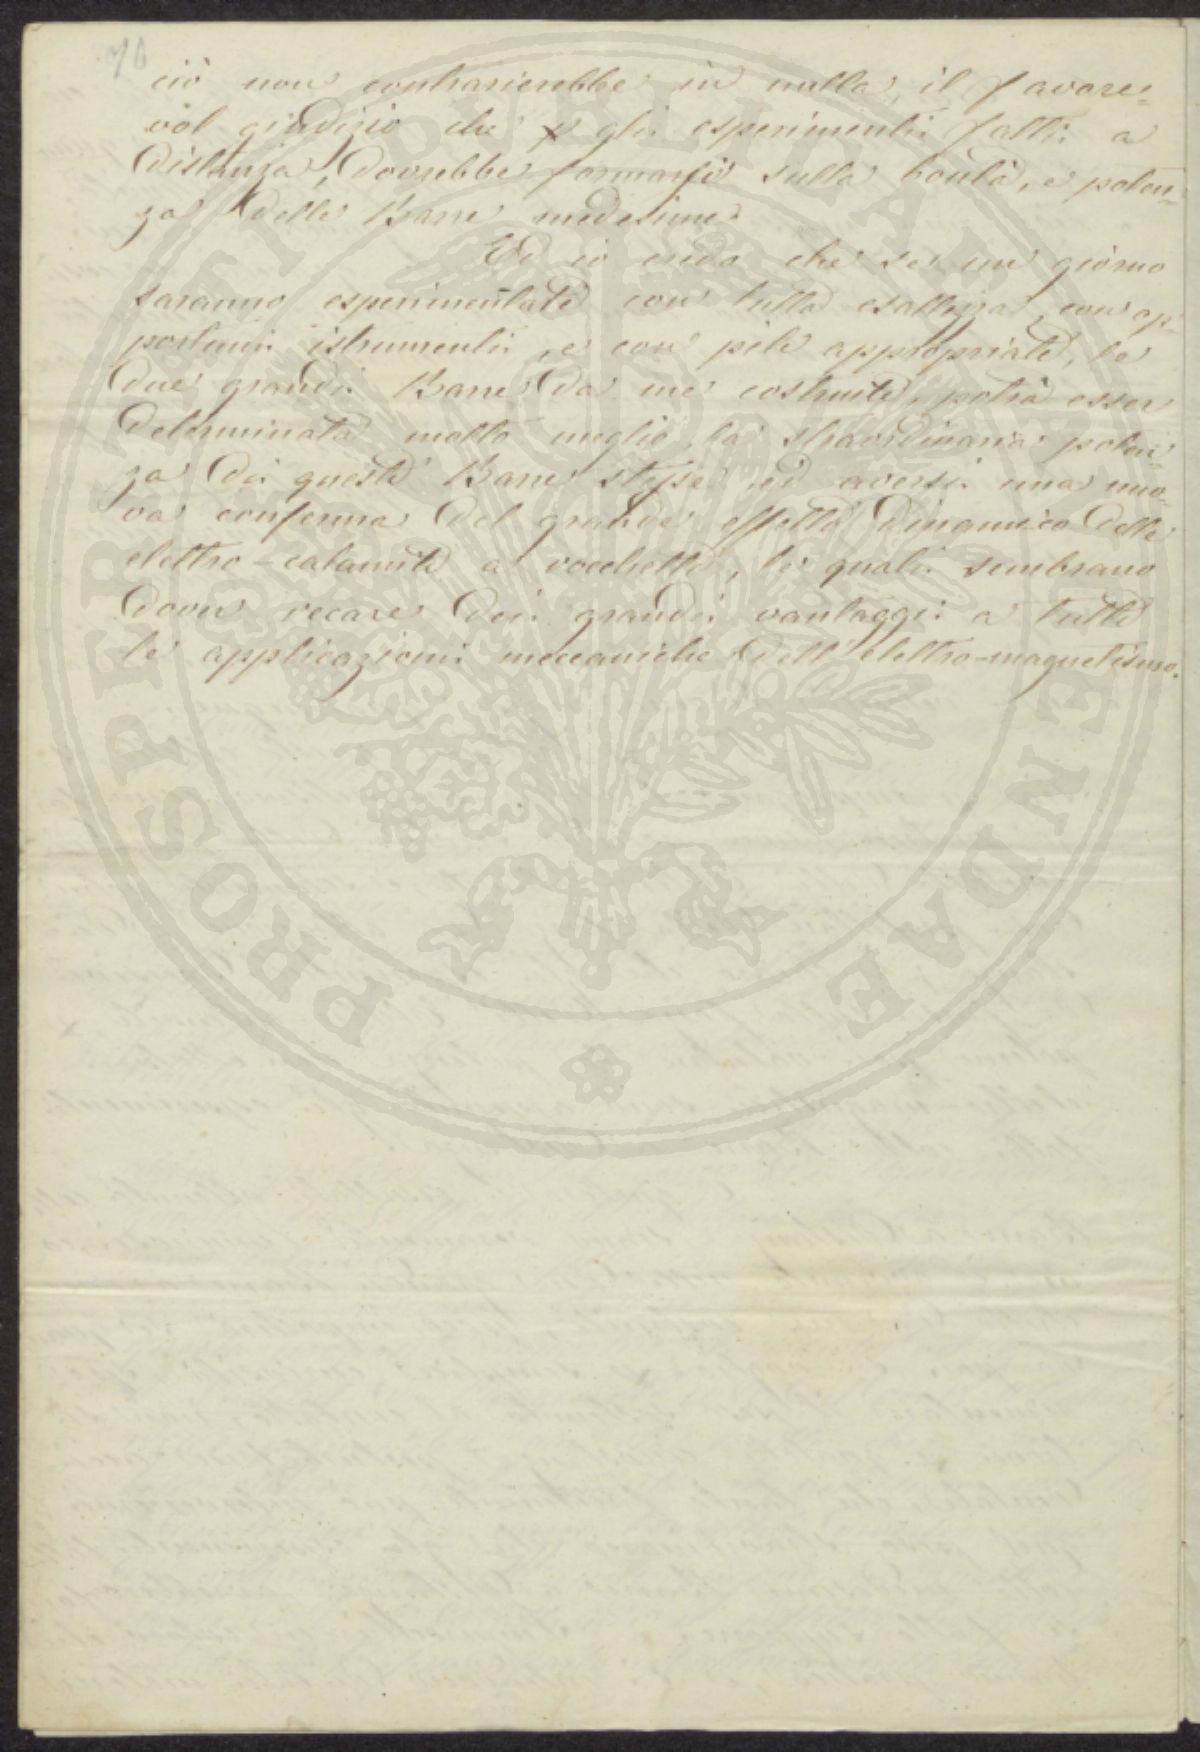 70
ciò non contrarierebbe in nulla, il favore=
vol giudizio che p gli esperimenti fatti a
distanza, dovrebbe formarsi sulla bontà, e poten=
za delle Barre medesime.
Ed io credo che se un giorno
saranno esperimentate con tutta esattezza, con op=
portuni istrumenti, e con pile appropriate, le
due grandi Barre da me costruite, potrà esser
determinata molto meglio la straordinaria poten=
za di queste Barre stesse ed aversi una nuo=
va conferma del grande effetto dinamico delle
elettro-calamite a rocchetto, le quali sembrano
dover recare dei grandi vantaggi a tutte
le applicazioni meccaniche dell'elettro-magnetismo.
PROSPERITATI PUBLICAE AUGENDAE